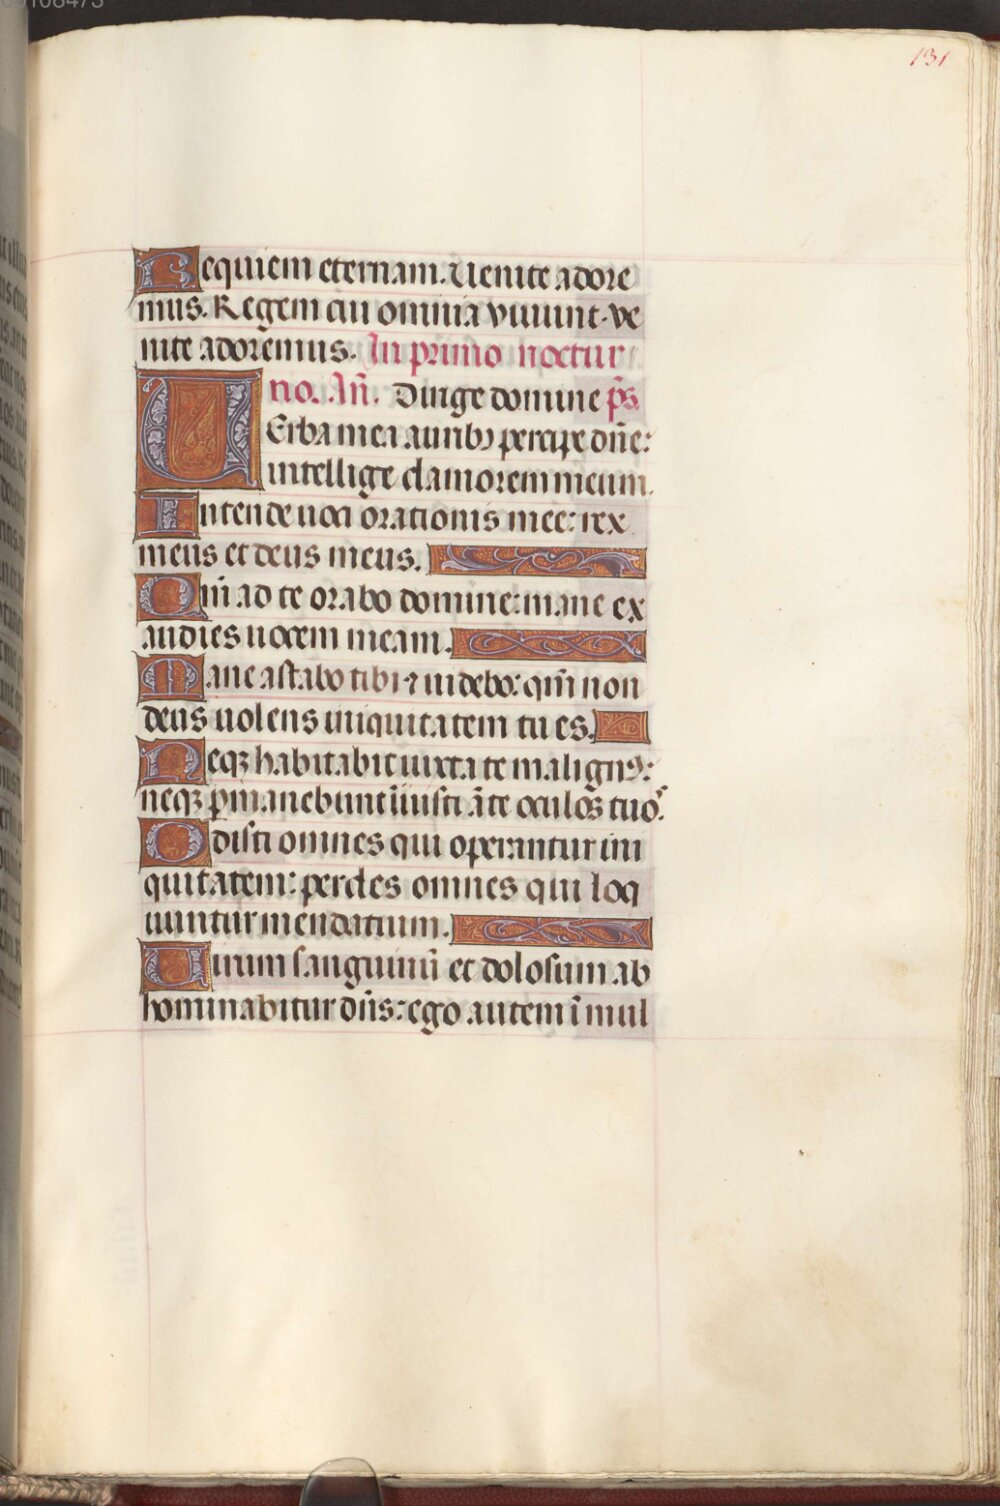 131
Requiem eternam. Uenite adore
mus. Regem cui omnia viuunt. ve
nite adoremus. In primo noctur
no. Añ. Dirige domine ps̃.
UErba mea auribꝫ percipe dñe:
intellige clamorem meum.
Intende uoci orationis mee: rex
meus et deus meus.
Qm̃ ad te orabo domine: mane ex
audies uocem meam.
Mane astabo tibi ⁊ uidebo: qm̃ non
deus uolens iniquitatem tu es.
Neqꝫ habitabit iuxta te malignꝰ:
neqꝫ ꝑmanebunt iniusti ãte oculos tuos.
Odisti omnes qui operantur ini
quitatem: perdes omnes qui loq
uuntur mendatium.
Uirum sanguinũ et dolosum ab
hominabitur dñs: ego autem ĩ mul